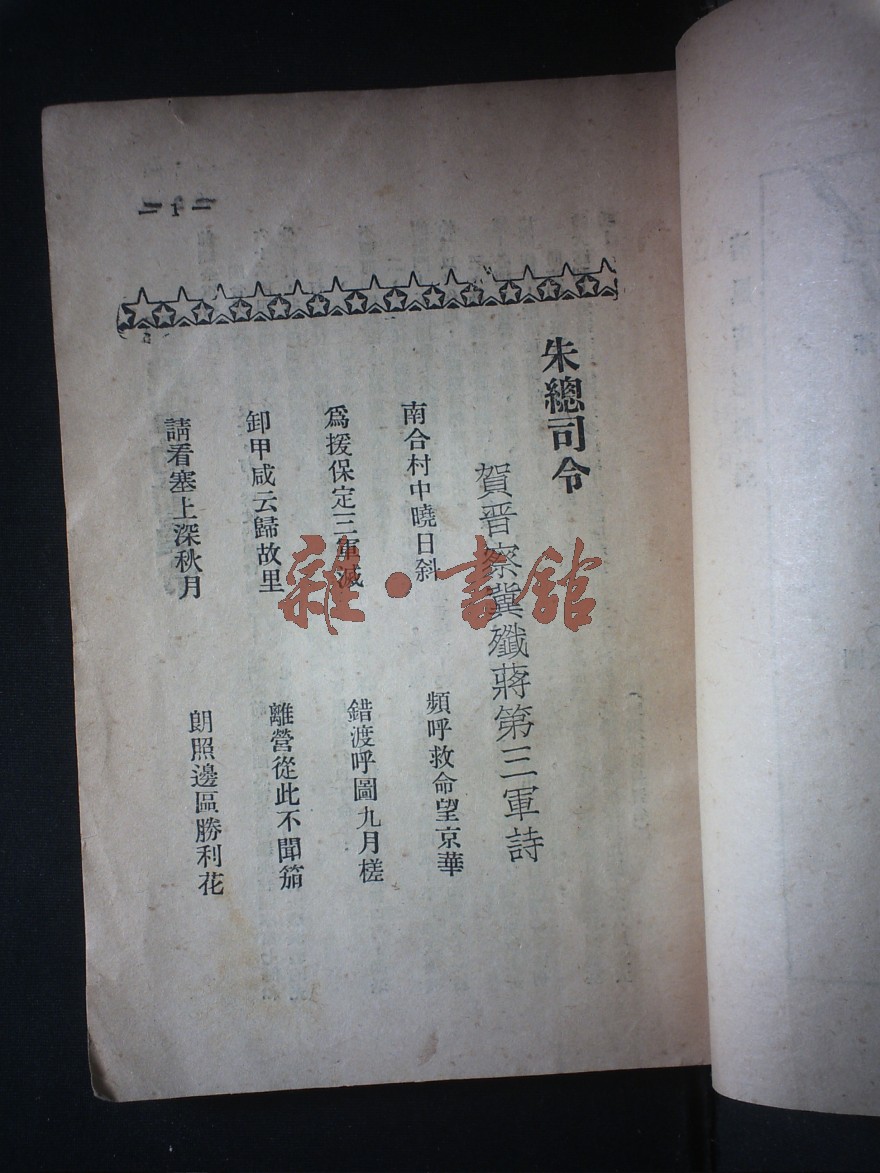 朱總司令
賀晋察冀殲蔣第三軍詩
南合村中曉日斜
頻呼救命望京華
爲援保定三軍滅
錯渡呼圖九月槎
卸甲咸云歸故里
離營從此不聞笳
請看塞上深秋月
朗照邊區勝利花
雜·書舘